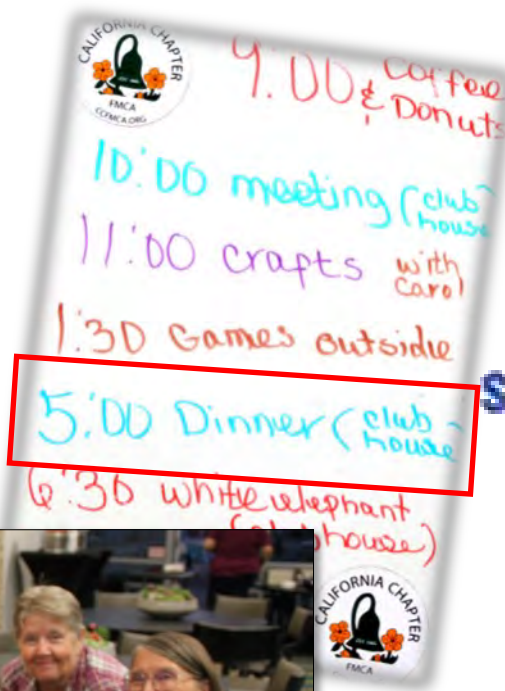 CALIFORNIA CHAPTER
FMCA
CCFMCA.ORG
9:00 Coffee
& Donuts
10:00 meeting (club
house
11:00 crafts with
Carol
1:30 Games outside
5:00 Dinner (club
house
S
6:30 white elephant
house)
CALIFORNIA CHAPTER
FMCA